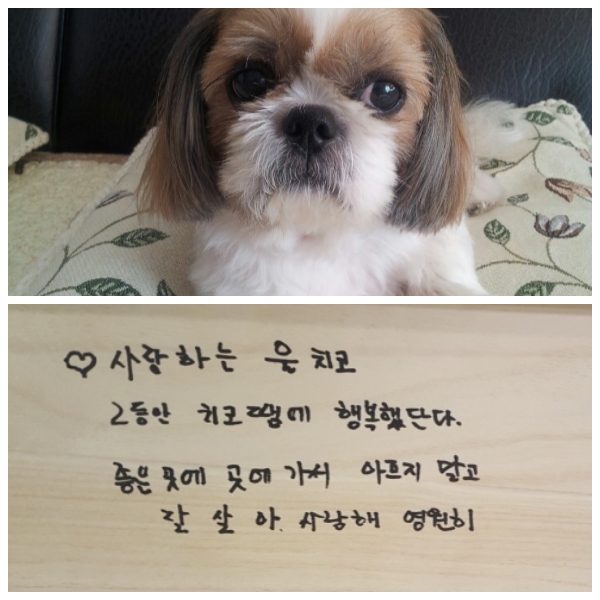 ♡ 사랑하는 울 치코
그동안 치코땜에 행복했단다.
좋은 곳에 곳에 가서 아프지 말고
잘 살아. 사랑해 영원히